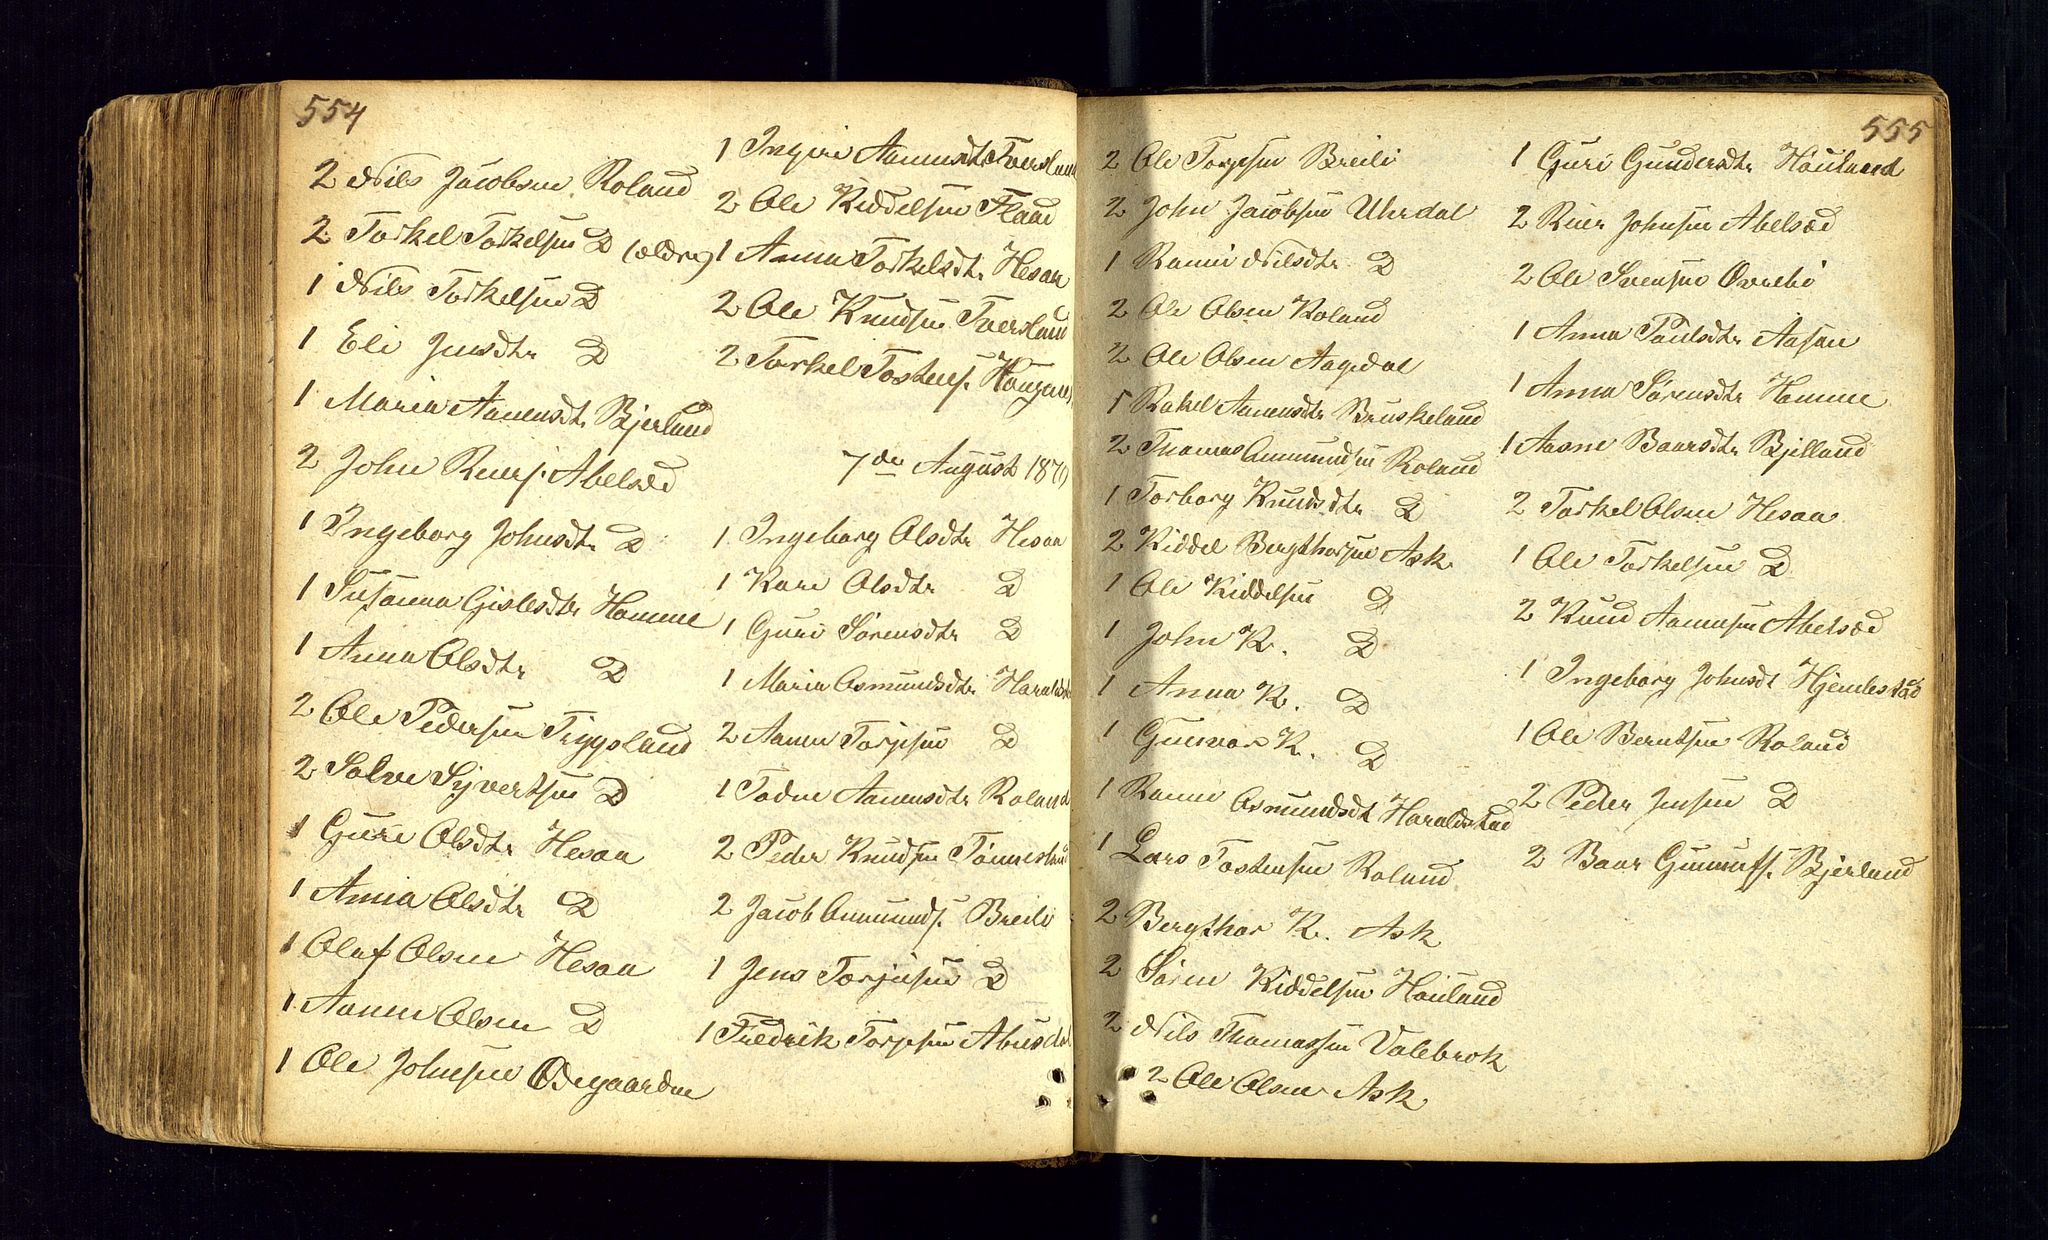 554
2 Nils Jacobsen Roland
2 Torkel Torkelsen D (ældre)
1 Nils Torkelsen D
1 Eli Jensdtr D
1 Maria Aanensdtr Bjerland
2 John Reiers. Abelsæd
1 Ingeborg Johnsdtr D
1 Susanna Gislesdtr Homme
1 Anna Olsdtr D
2 Ole Pedersen Tryggsland
2 Salve Syvertsen D
1 Guri Olsdtr Hesaa
1 Anna Olsdtr D
1 Olaf Olsen Hesaa
1 Aanen Olsen D
1 Ole Johnsen Ødegaarden
1 Ingeri Aanensdtr Tversland
2 Ole Kiddelsen Flaad
1 Anna Torkelsdtr Hesaa
2 Ole Knudsen Tversland
2 Torkel Tostens. Haugen
7de August 1870
1 Ingeborg Olsdtr Hesaa
1 Kari Olsdtr D
1 Guri Sørensdtr D
1 Maria Osmundsdtr Haralds
2 Aanen Torjesen D
1 Todne Aanensdtr Roland
2 Peder Knudsen Tønnesland
2 Jacob Aamunds. Breili
1 Jens Torjusen D
1 Fredrik Torjesen Abusdal
555
2 Ole Torjesen Breili
2 John Jacobsen Uhrdal
1 Ranni Nilsdtr D
2 Ole Olsen Roland
2 Ole Olsen Aagedal
1 Rakel Aanensdtr Bruskeland
2 Thomas Aamundsen Roland
1 Torborg Knudsdtr D
2 Kiddel Bergthorsen Ask
1 Ole Kiddelsen D
1 John K. D
1 Anna K. D
1 Gunvor K. D
1 Ranni Osmundsdt Haraldstad
1 Lars Tostensen Roland
2 Bergthor K. Ask
2 Søren Kiddelsen Houland
2 Nils Thomassen Valebrok
2 Ole Olsen Ask
1 Guri Gundersdtr Houland
2 Reier Johnsen Abelsæd
2 Ole Svensen Øvrebø
1 Anna Paulsdtr Aasan
1 Anna Sørensdtr Homme
1 Aasne Baarsdtr Bjelland
2 Torkel Olsen Hesaa
1 Ole Torkelsen D
2 Knud Aanensen Abelsæd
1 Ingeborg Johnsdt Hjemlestad
1 Ole Berntsen Roland
2 Peder Jensen D
2 Baar Gunnufs. Bjerland